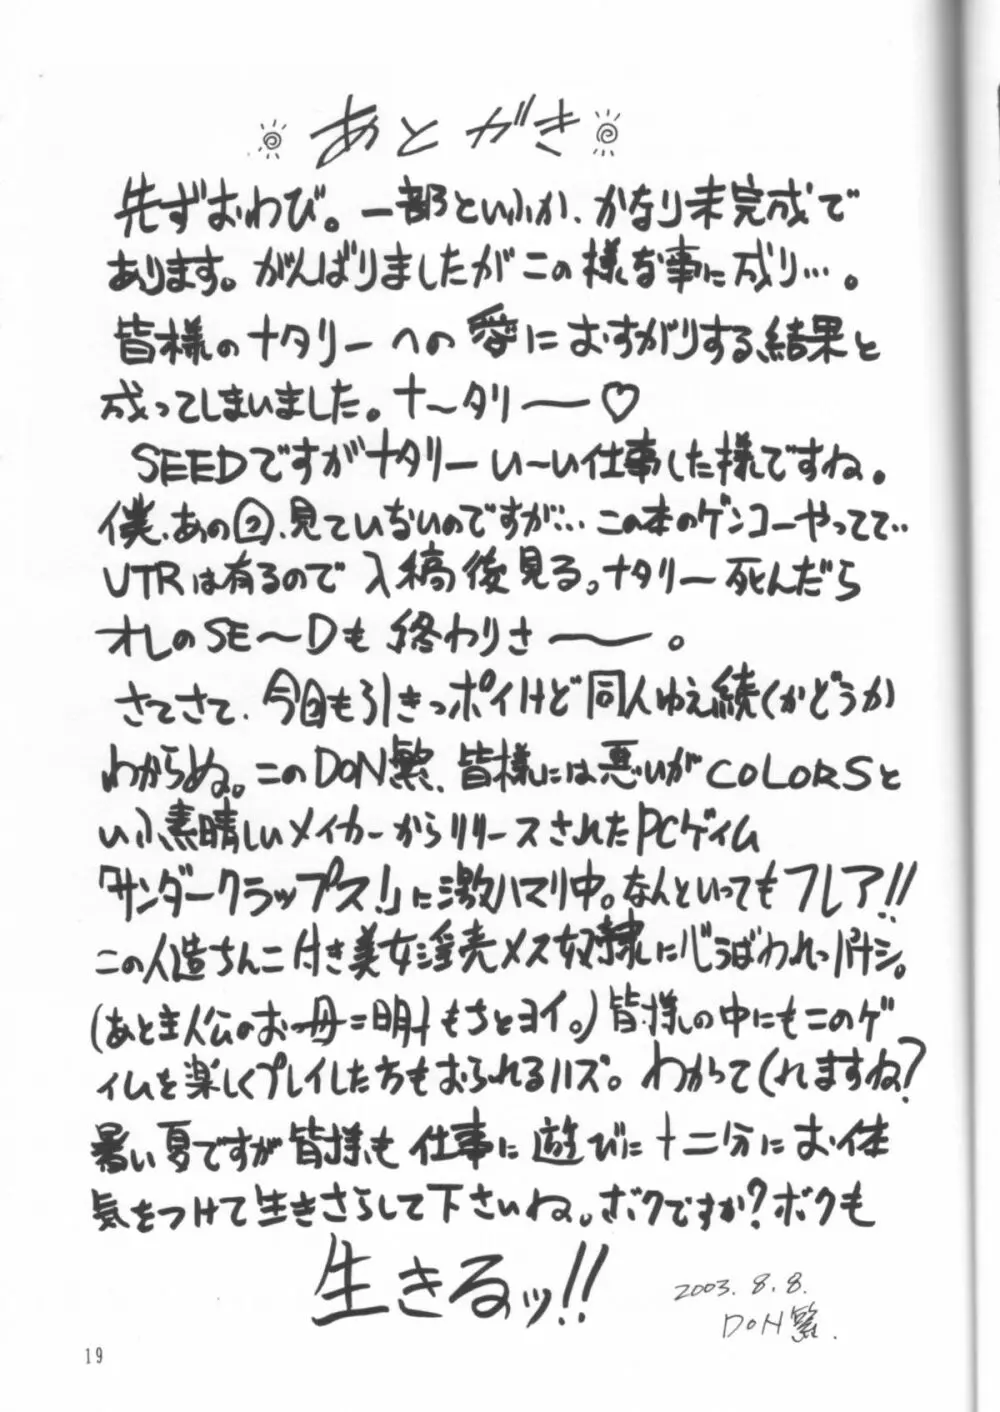 あとがき
先ずおわび。一部といふか、かなり未完成で
あります。がんばりましたがこの様な事に成り…。
皆様のナタリーへの愛におすがりする、結果と
成ってしまいました。ナ〜タリー──♡
SEEDですがナタリーい〜い仕事した様ですね。
僕、あの回、見ていないのですが… この本のゲンコーやってて‥
VTRは有るので入稿後見る。ナタリー死んだら
オレのSE〜Dも終わりさ──。
さてさて、今回も引きっポイけど同人ゆえ続くかどうか
わからぬ。このDoN繁、皆様には悪いがCOLORSと
いふ素晴しいメイカーからリリースされたPCゲイム
「サンダークラップス!」に激ハマリ中。なんといってもフレア!!
この人造ちんこ付き美女淫売メス奴隷に心うばわれっパナシ。
(あと主人公のお母ニ明月もちとヨイ。)皆様の中にもこのゲ
イムを楽しくプレイした方もおられるハズ。わかってくれますね?
暑い夏ですが皆様も仕事に遊びに十二分にお体
気をつけて生きさらして下さいね。ボクですか?ボクも
生きるッ!!
2003.8.8.
DoN繁.
19